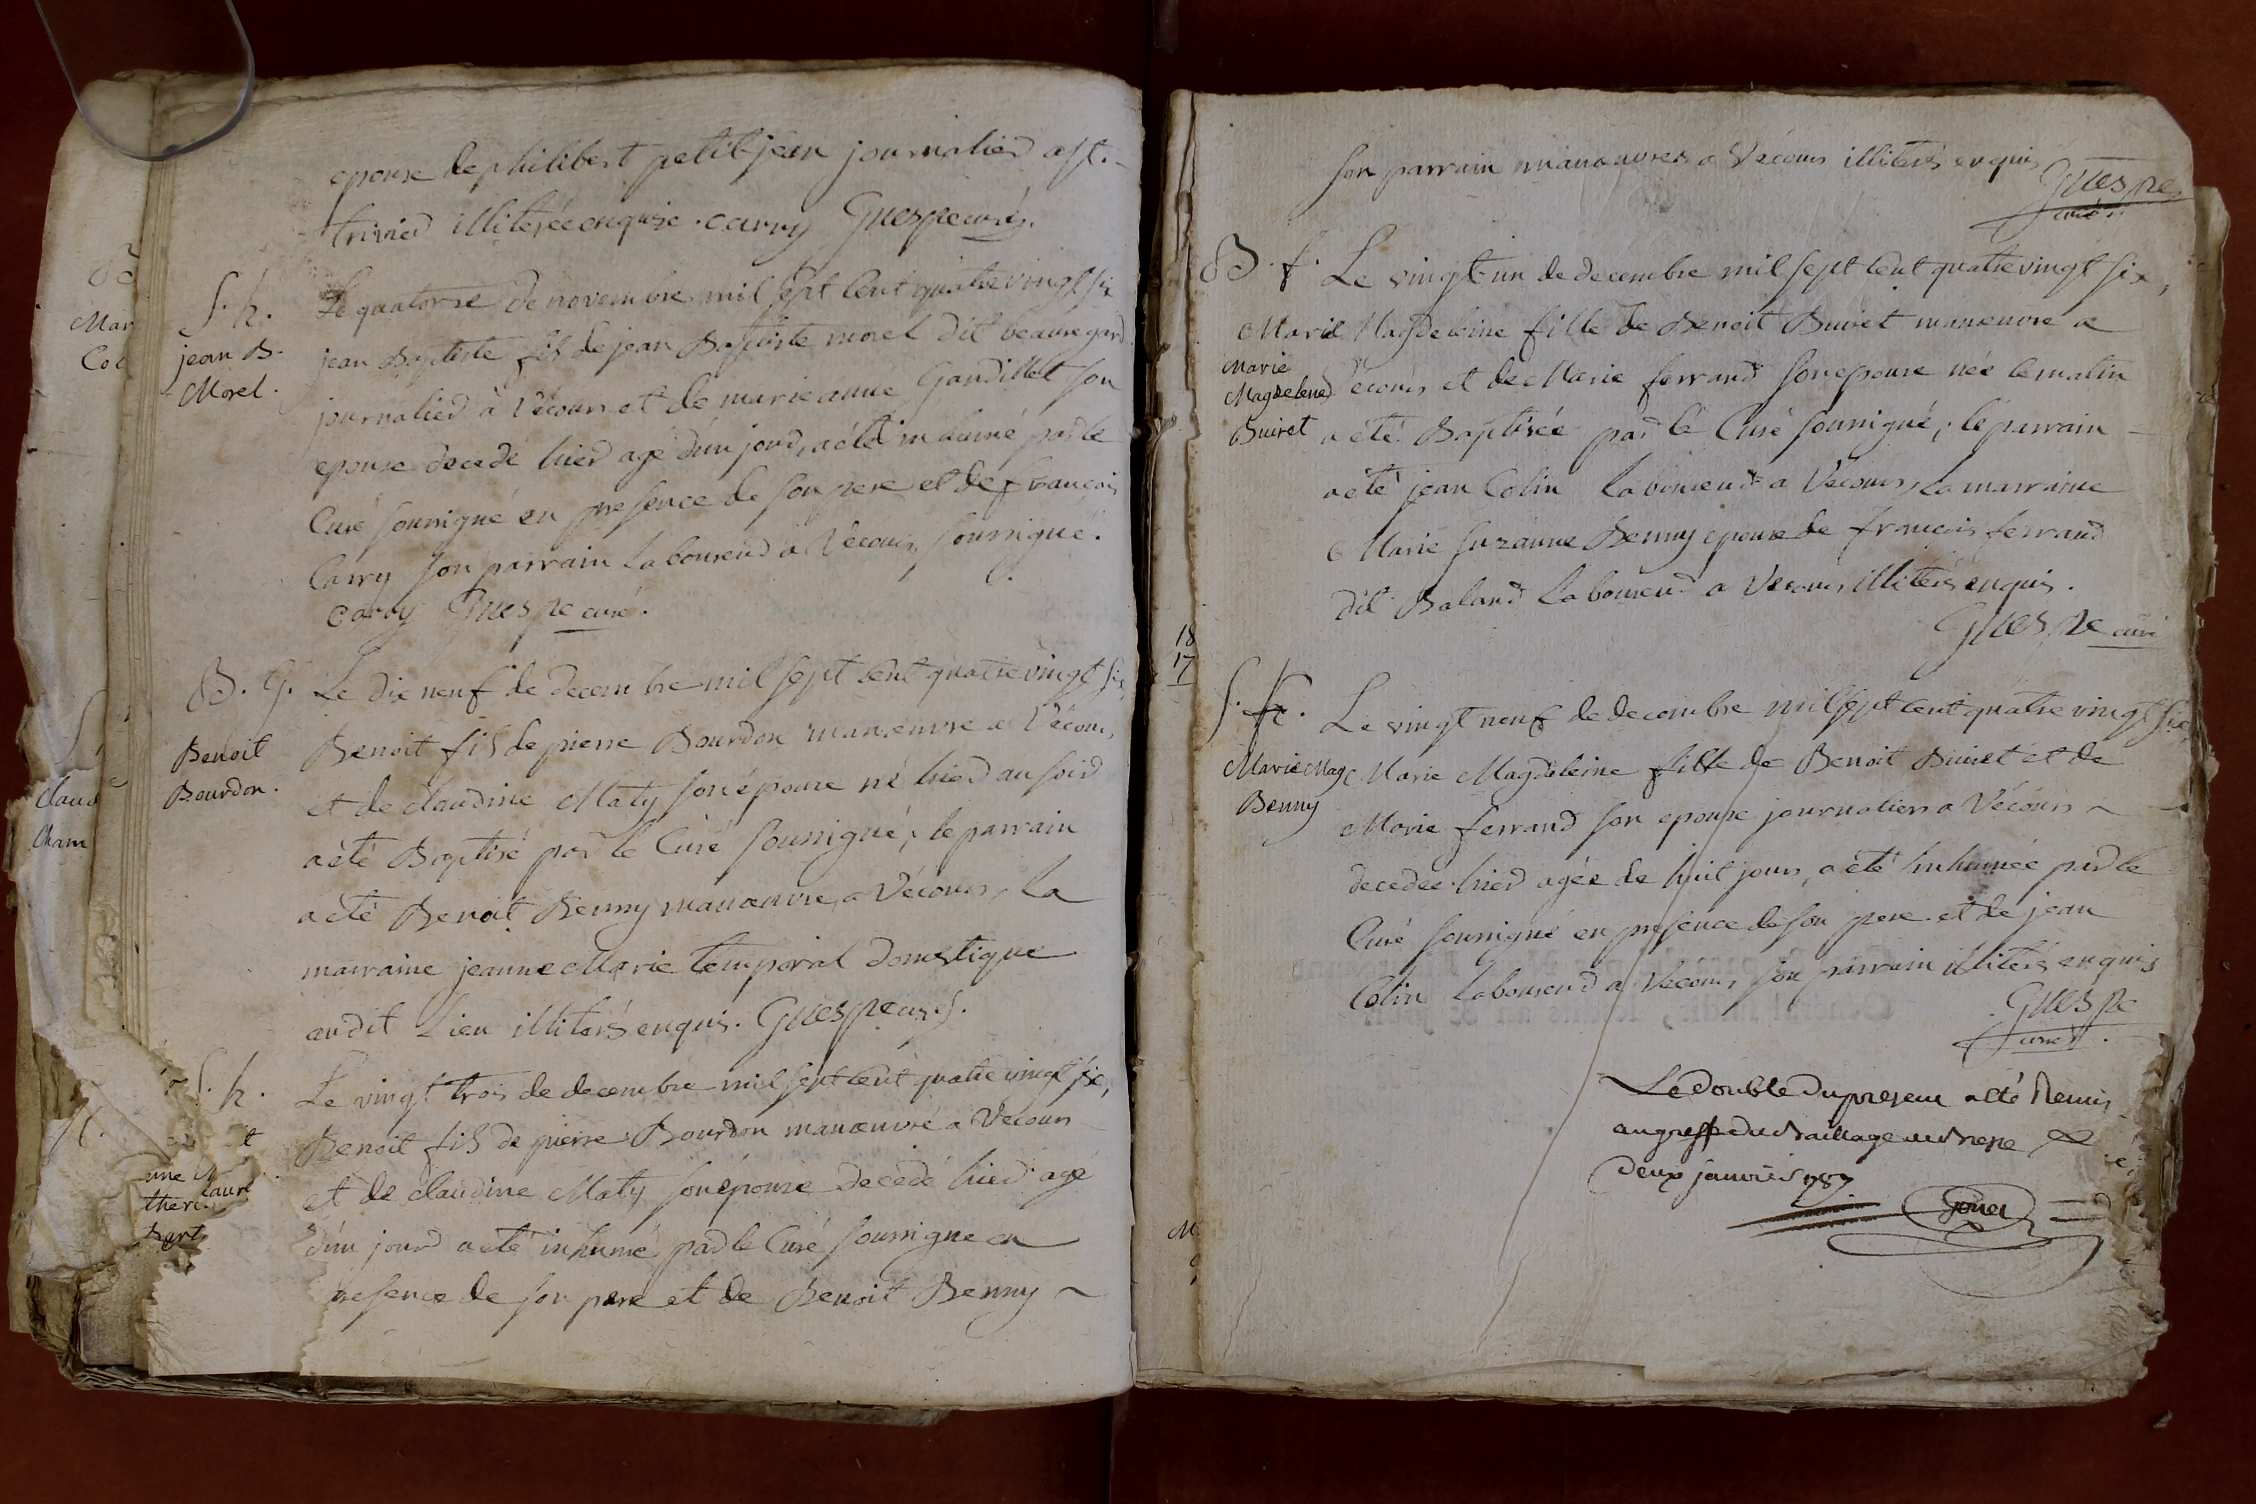 epouse de philibert petitjean journalier a st.
trivier illiterée enquise. carry Guespe curé.
S. h.
jean B.
Morel.
Le quatorze de novembre mil sept cent quatre vingt six
jean Baptiste fils de jean Baptiste morel dit beauregard
journalier à Vécours et de marieanne Gandillet son
epouse decedé hier agé d'un jour, a été inhumé par le
Curé soussigné en presence de son pere et de françois
Carry son parrain laboureur à Vécours, soussigné.
carry Guespe curé.
B. G.
Benoit
Bourdon.
Le dix neuf de decembre mil sept cent quatre vingt six,
Benoit fils de pierre Bourdon manœuvre a Vécours,
et de claudine Maty son épouse né hier au soir
a été Baptisé par le Curé soussigné; le parrain
a été Benoit Benny manœuvre a Vécours, la
marraine jeanne Marie temporal domestique
audit Lieu illiterés enquis. Guespe curé.
S. h.
Le vingt trois de decembre mil sept cent quatre vingt six,
Benoit fils de pierre Bourdon manœuvre a Vecours
et de claudine Maty son épouse decedé hier agé
d'un jour a été inhumé par le Curé soussigné en
presence de son pere et de Benoit Benny
Mar
Claud
Cham
son parrain manœuvres a Vécours illiterés enquis
Guespe
curé.
B. f.
Marie
Magdelene
Buiret
Le vingt-un de decembre mil sept cent quatre vingt six,
Marie Magdeleine fille de Benoit Buiret manœuvre a
Vécours et de Marie ferrand son epouse née le matin
a été Baptisée par le Curé soussigné; le parrain
a été jean Colin laboureur a Vécours, la marraine
Marie suzanne Benny epouse de françois ferrand
dit Baland laboureur a Vecours illiterés enquis.
Guespe curé
18
17
S. h.
Marie Mag
Benny
Le vingt neuf de decembre mil sept cent quatre vingt six
Marie Magdeleine fille de Benoit Buiret et de
Marie ferrand son epouse journaliers a Vécours
decedée hier agée de huit jours, a été inhumée par le
Curé soussigné en presence de son pere et de jean
Colin laboureur a Vécours, son parrain illiterés enquis
Guespe
curé.
Le double du present a été Remis
au greffe du Baillage de Bresse
deux janvier 1787